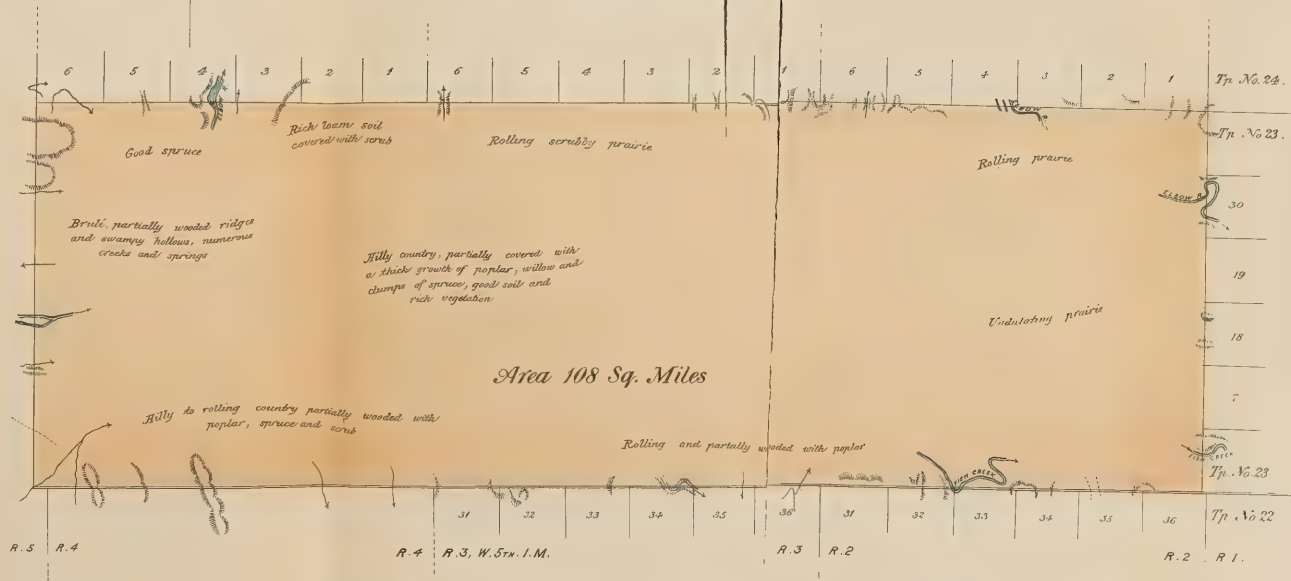 6 5 4 3 2 1 6 5 4 3 2 1 6 5 4 3 2 1 Tp No. 24.
ELBOW
ELBOW
Tp. No 23.
Rich loam soil
covered with scrub
Good spruce
Rolling scrubby prairie
Rolling prairie
ELBOW R
30
Brulé, partially wooded ridges
and swampy hollows, numerous
creeks and springs
Hilly country, partially covered with
a thick growth of poplar, willow and
clumps of spruce, good soil and
rich vegetation
19
Undulating prairie
18
Area 108 Sq. Miles
7
Hilly to rolling country partially wooded with
poplar, spruce and scrub
Rolling and partally wooded with poplar
FISH CREEK
FISH CREEK
Tp. No. 23
31 32 33 34 35 36 31 32 33 34 35 36 Tp. No 22
R.5 R.4 R.4 R.3, W.5TH. I.M. R.3 R.2 R.2 R 1.